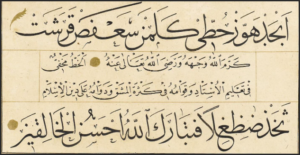 ابجد هوز حطي كلمن سعفص قرشت
كرم الله وجهه ورضي الله تعالى عنه الخط مخفي
في تعليم الاستاد وقوامه في كثرة المشق ودوامه على دين الاسلام
ثخذ ضظغ لا فتبارك الله احسن الخالقين